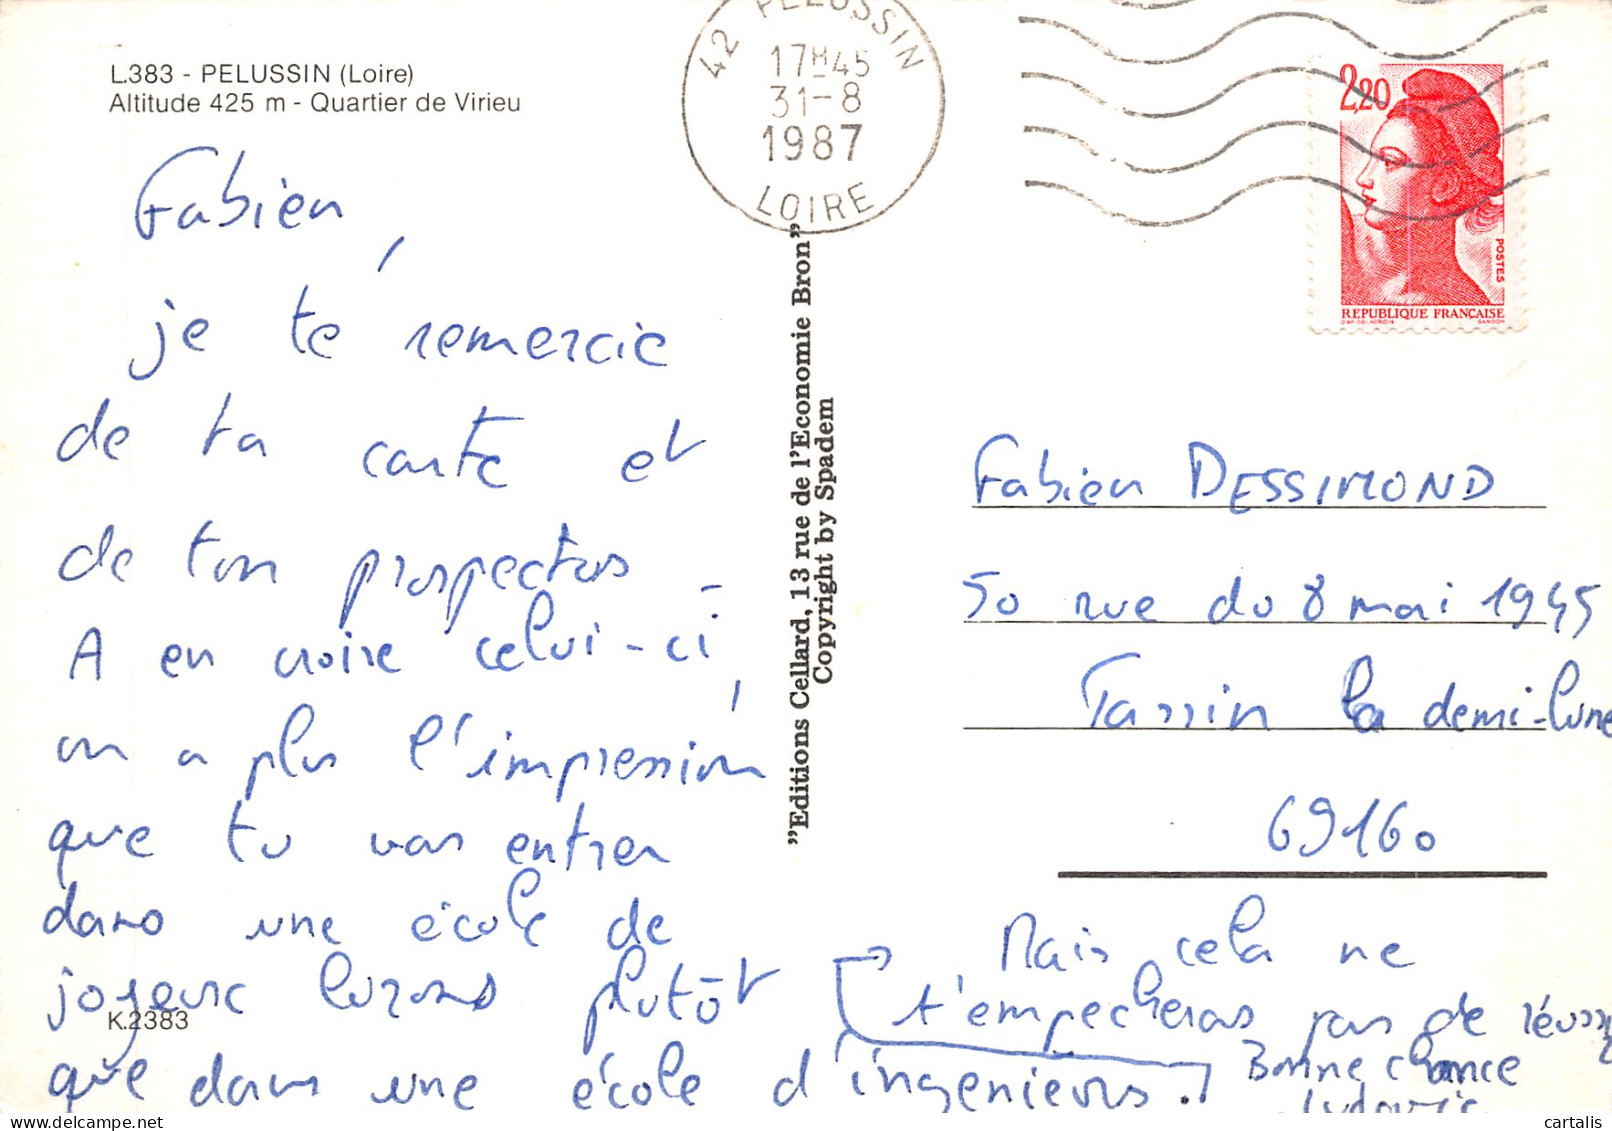 L.383 - PELUSSIN (Loire)
Altitude 425 m - Quartier de Virieu
42 PELUSSIN
17H45
31-8
1987
LOIRE
2,20
POSTES
REPUBLIQUE FRANÇAISE
Fabien,
je te remercie
de ta carte et
de ton prospectus -
A en croire celui-ci,
on a plus l'impression
que tu vas entrer
dans une école de
joyeux lurons plutôt
que dans une école d'ingénieurs.
K.2383
"Editions Cellard, 13 rue de l'Economie Bron"
Copyright by Spadem
Fabien DESSIMOND
50 rue du 8 mai 1945
Tassin la demi-lune
69160
Mais cela ne
t'empecheras pas de réussir
Bonne chance
Ludovic
cartalis
delcampe.net